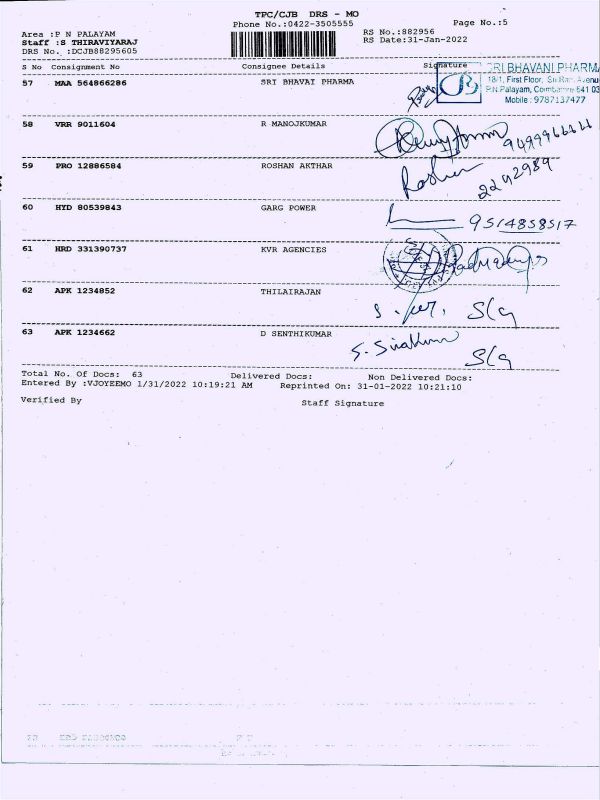 TPC/CJB DRS - MO
Phone No.:0422-3505555
Page No.:5
Area :P N PALAYAM
Staff :S THIRAVIYARAJ
DRS No. :DCJB88295605
RS No.:882956
RS Date:31-Jan-2022
S No Consignment No Consignee Details Signature
SRI BHAVANI PHARMA
18/1, First Floor, Sri Ram Avenu
P.N.Palayam, Coimbatore-641 03
Mobile : 9787137477
57 MAA 564866286 SRI BHAVAI PHARMA
58 VRR 9011604 R MANOJKUMAR
59 PRO 12886584 ROSHAN AKTHAR Roshan
2242989
60 HYD 80539843 GARG POWER
9514858517
61 HRD 331390737 KVR AGENCIES
62 APK 1234852 THILAIRAJAN
63 APK 1234662 D SENTHIKUMAR
Total No. Of Docs: 63 Delivered Docs: Non Delivered Docs:
Entered By :VJOYEEMO 1/31/2022 10:19:21 AM Reprinted On: 31-01-2022 10:21:10
Verified By Staff Signature